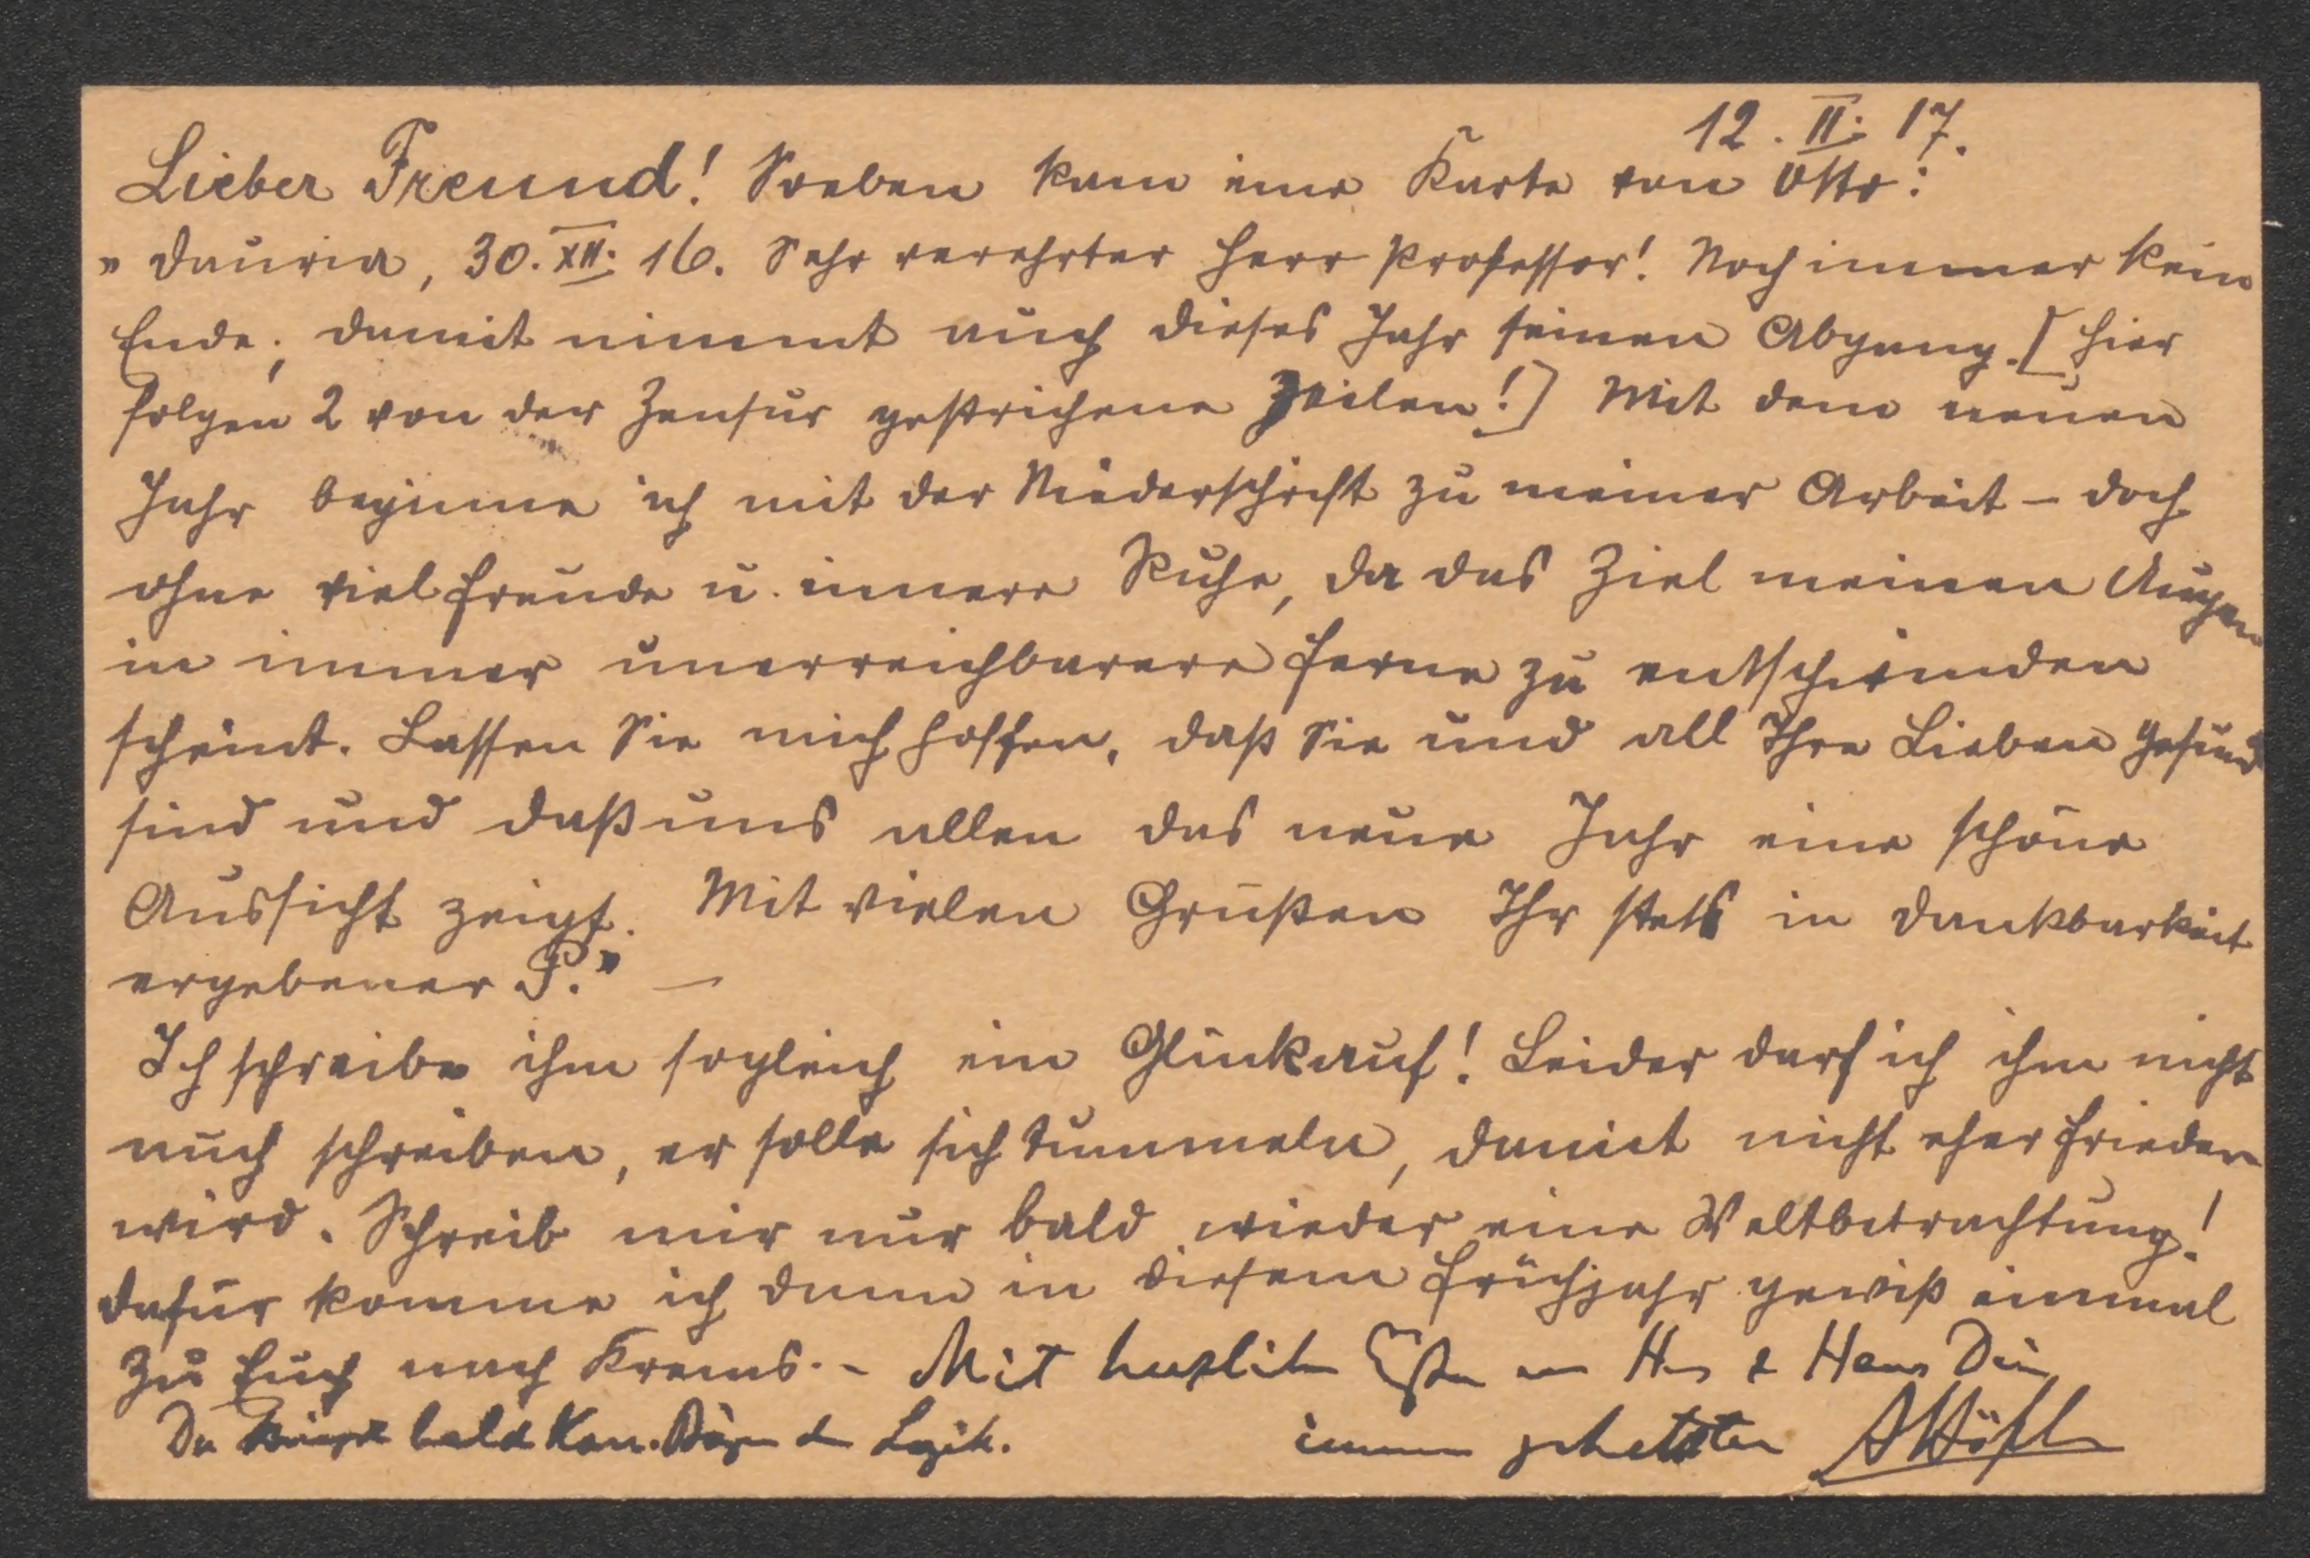 12. II. 17.
Lieber Freund! Soeben kam eine Karte von Otto:
„Dauria, 30. XII. 16. Sehr verehrter Herr Professor! Noch immer kein
Ende; damit nimmt auch dieses Jahr seinen Abgang. [Hier
folgen 2 von der Zensur gestrichene Zeilen!] Mit dem neuen
Jahr beginne ich mit der Niederschrift zu meiner Arbeit – doch
ohne viel Freude u. innere Ruhe, da das Ziel meinen Augen
in immer unerreichbarere Ferne zu entschwinden
scheint. Lassen Sie mich hoffen, daß Sie und all Ihre Lieben gesund
sind und daß uns allen das neue Jahr eine schöne
Aussicht zeigt. Mit vielen Grüßen Ihr stets in Dankbarkeit
ergebener P.“ –
Ich schreibe ihm sogleich ein Glückauf! Leider darf ich ihm nicht
auch schreiben, er solle sich tummeln, damit nicht eher Frieden
wird. Schreib mir nur bald wieder eine Weltbetrachtung!
Dafür komme ich dann in diesem Frühjahr gewiß einmal
zu Euch nach Krems. – Mit Haus Dein
Du bald Logik.
immer gehetzter AHöfler